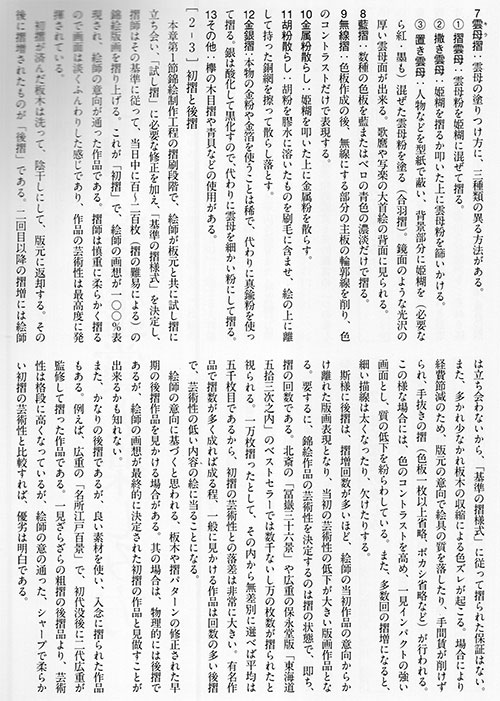 7雲母摺:雲母の塗りつけ方に、三種類の異る方法がある。
①摺雲母:雲母粉を姫糊に混ぜて摺る。
②撒き雲母:姫糊を摺るか叩いた上に雲母粉を篩いかける。
③置き雲母:人物などを型紙で蔽い、背景部分に姫糊を(必要な
ら紅・墨も)混ぜた雲母粉を塗る(合羽摺)。鏡面のような光沢の
厚い雲母面が出来る。歌麿や写楽の大首絵の背面に見られる。
8藍摺:数種の色板を藍またはベロの青色の濃淡だけで摺る。
9無線摺:色板作成の後、無線にする部分の主板の輪郭線を削り、色
のコントラストだけで表現する。
10金属粉散らし:姫糊を叩いた上に金属粉を散らす。
11胡粉散らし:胡粉を膠水に溶いたものを刷毛に含ませ、絵の上に離
して持った銅網を擦って散らし落とす。
12金銀摺:本物の金粉や金箔を使うことは稀で、代わりに真鍮粉を使っ
て摺る。銀は酸化して黒化するので、代わりに雲母を細かい粉にして摺る。
13その他:欅の木目摺や青貝などの使用がある。
[2-3]初摺と後摺
本章第1節錦絵制作工程の摺刷段階で、絵師が板元と共に試し摺に
立ち会い、「試し摺」に必要な修正を加え、「基準の摺様式」を決定し、
摺師はその基準に従って、当日中に百~二百枚(摺の難易による)の
錦絵版画を摺り上げる。これが「初摺」で、絵師の画想が一〇〇%表
現され、絵師の意向が通った作品である。摺師は慎重に柔らかく摺る
ので画面は淡くふんわりした感じであり、作品の芸術性は最高度に発
揮されている。
初摺が済んだ板木は洗って、陰干しにして、版元に返却する。その
後に摺増されたものが「後摺」である。二回目以降の摺増には絵師
は立ち会わないから、「基準の摺様式」に従って摺られた保証はない。
また、多かれ少なかれ板木の収縮による色ズレが起こる。場合により
経費節減のため、版元の意向で絵具の質を落したり、手間賃が削けず
られ、手抜きの摺(色板一枚以上省略、ボカシ省略など)が行われる。
この様な場合には、色のコントラストを高め、一見インパクトの強い
画面とし、質の低下を紛らわしている。また、多数回の摺増になると、
細い描線は太くなったり、欠けたりする。
斯様に後摺は、摺増回数が多いほど、絵師の当初作品の意向からか
け離れた版画表現となり、当初の芸術性の低下が大きい版画作品とな
る。要するに、錦絵作品の芸術性を決定するのは摺の状態で、即ち、
摺の回数である。北斎の「冨嶽三十六景」や広重の保永堂版「東海道
五拾三次之内」のベストセラーでは数千ないし万の枚数が摺られたと
視られる。一万枚摺ったとして、その内から無差別に選べば平均は
五千枚目であるから、初摺の芸術性との落差は非常に大きい。有名作
品で摺数が多く成れば成る程、一般に見かける作品は回数の多い後摺
で、芸術性の低い内容の絵に当ることになる。
絵師の意向に基づくと思われる、板木や摺パターンの修正された早
期の後摺作品を見かける場合がある。其の場合は、物理的には後摺で
あるが、絵師の画想が最終的に決定された初摺の作品と見做すことが
出来るかも知れない。
また、かなりの後摺であるが、良い素材を使い、入念に摺られた作品
もある。例えば、広重の「名所江戸百景」で、初代没後に二代広重が
監修して摺った作品である。一見ざらざらの粗摺の後摺品より、芸術
性は格段に高くなっているが、絵師の意の通った、シャープで柔らか
い初摺の芸術性と比較すれば、優劣は明白である。